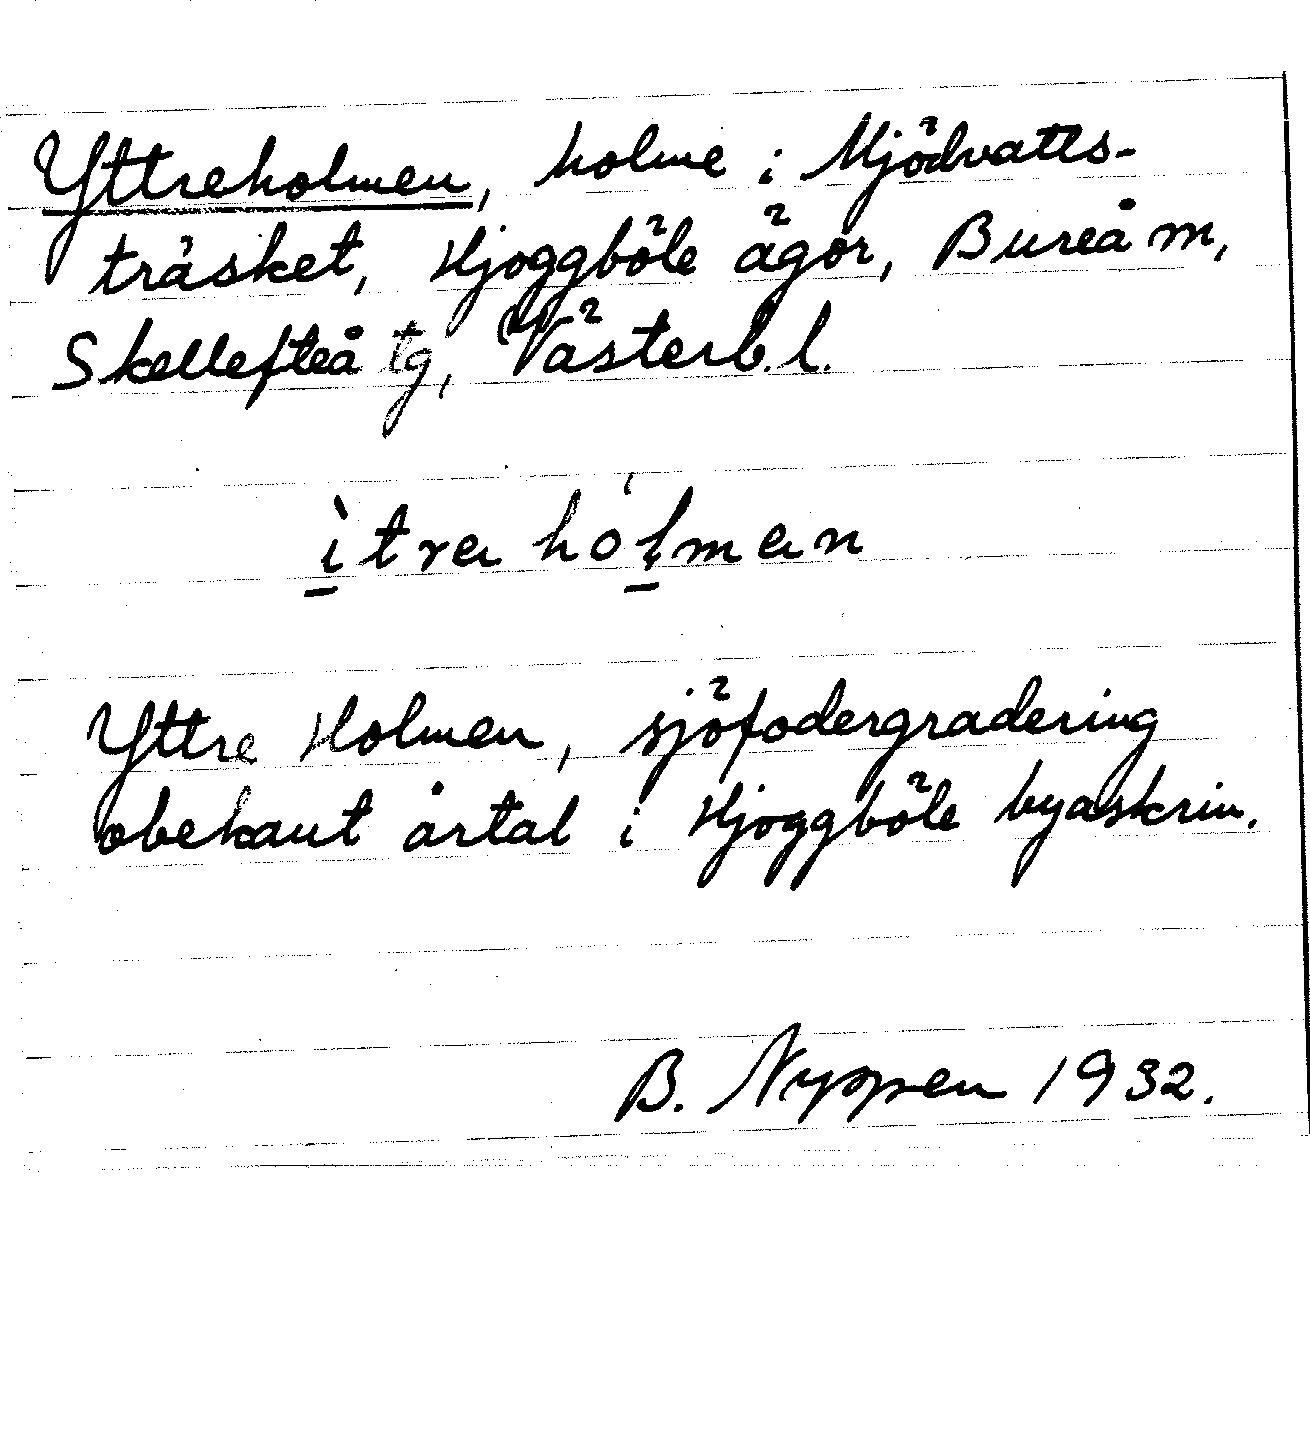 Yttreholmen, holme i Mjödvatts-
träsket, Hjoggböle ägor, Bureå m,
Skellefteå tg, Västerb. l.
ìtra hólman
Yttre Holmen, sjöfodergradering
obekant årtal i Hjoggböle byaskrin.
B. Nyppen 1932.